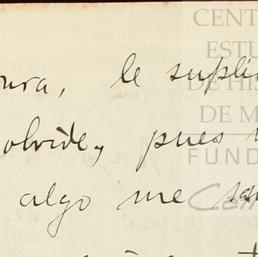 CENT
ESTU
DE HIS
DE M
FUND
ura, le supli
olvide, pues
algo me sa